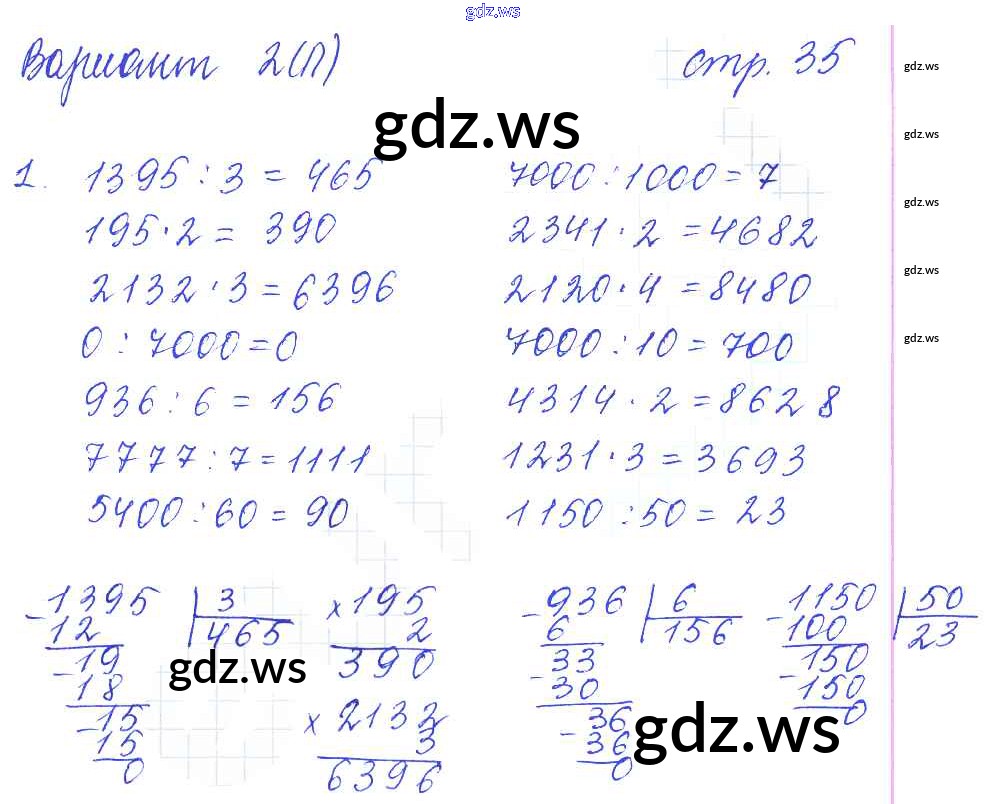 gdz.ws
Вариант 2(П) стр. 35
gdz.ws
gdz.ws
gdz.ws
1. 1395 : 3 = 465 7000 : 1000 = 7
gdz.ws
195 · 2 = 390 2341 · 2 = 4682
gdz.ws
2132 · 3 = 6396 2120 · 4 = 8480
gdz.ws
0 : 7000 = 0 7000 : 10 = 700
936 : 6 = 156 4314 · 2 = 8628
7777 : 7 = 1111 1231 · 3 = 3693
5400 : 60 = 90 1150 : 50 = 23
- 1395 | 3 × 195 - 936 | 6 - 1150 | 50
12 465 2 6 156 100 23
- 19 390 33 150
gdz.ws
- 18 - 30 - 150
- 15 × 2132 36 0
gdz.ws
15 3 - 36
0 6396 0